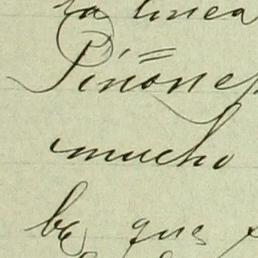 la linea
Piñones
mucho
be que